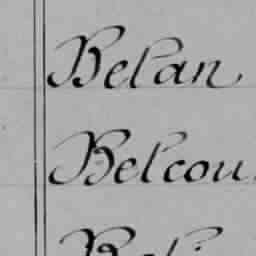 Belan
Belcou